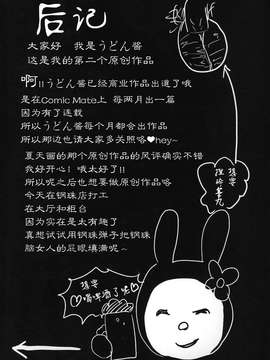 后记
大家好 我是うどん酱
这是我的第二个原创作品
啊!!うどん酱已经商业作品出道了哦
是在Comic Mate上 每两月出一篇
因为有了连载
所以うどん酱每个月都会出作品
所以那边也请大家多关照咯♥hey~
夏天画的那个原创作品的风评确实不错
我好开心！哦太好了!!
所以呢之后也想要做原创作品咯
今天在钢珠店打工
在大厅和柜台
因为实在是太有趣了
真想试试用钢珠弹子把钢珠
脑女人的屁眼填满呢~
想要
想要
喝啤酒了呢